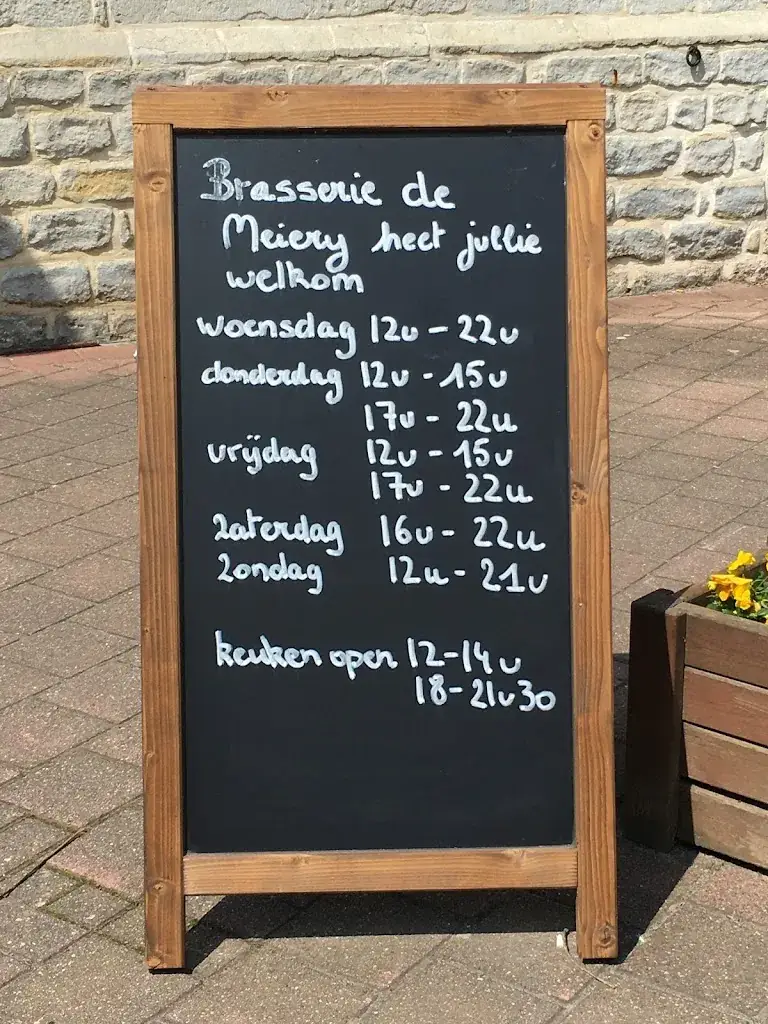 Brasserie de
Meiery heet jullie
welkom
woensdag 12u - 22u
donderdag 12u - 15u
17u - 22u
vrijdag 12u - 15u
17u - 22u
Zaterdag 16u - 22u
Zondag 12u - 21u
keuken open 12-14u
18-21u30